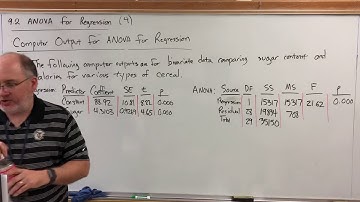 9.2 ANOVA for Regression (4)
Computer Output for ANOVA for Regression
The following computer outputs are for bivariate data comparing sugar content and
calories for various types of cereal.
Regression: Predictor Coefficient SE t p
Constant 88.92 10.81 8.22 0.000
Sugar 4.3103 0.9269 4.65 0.000
ANOVA: Source DF SS MS F p
Regression 1 15317 15317 21.62 0.000
Residual 28 19834 708
Total 29 35150